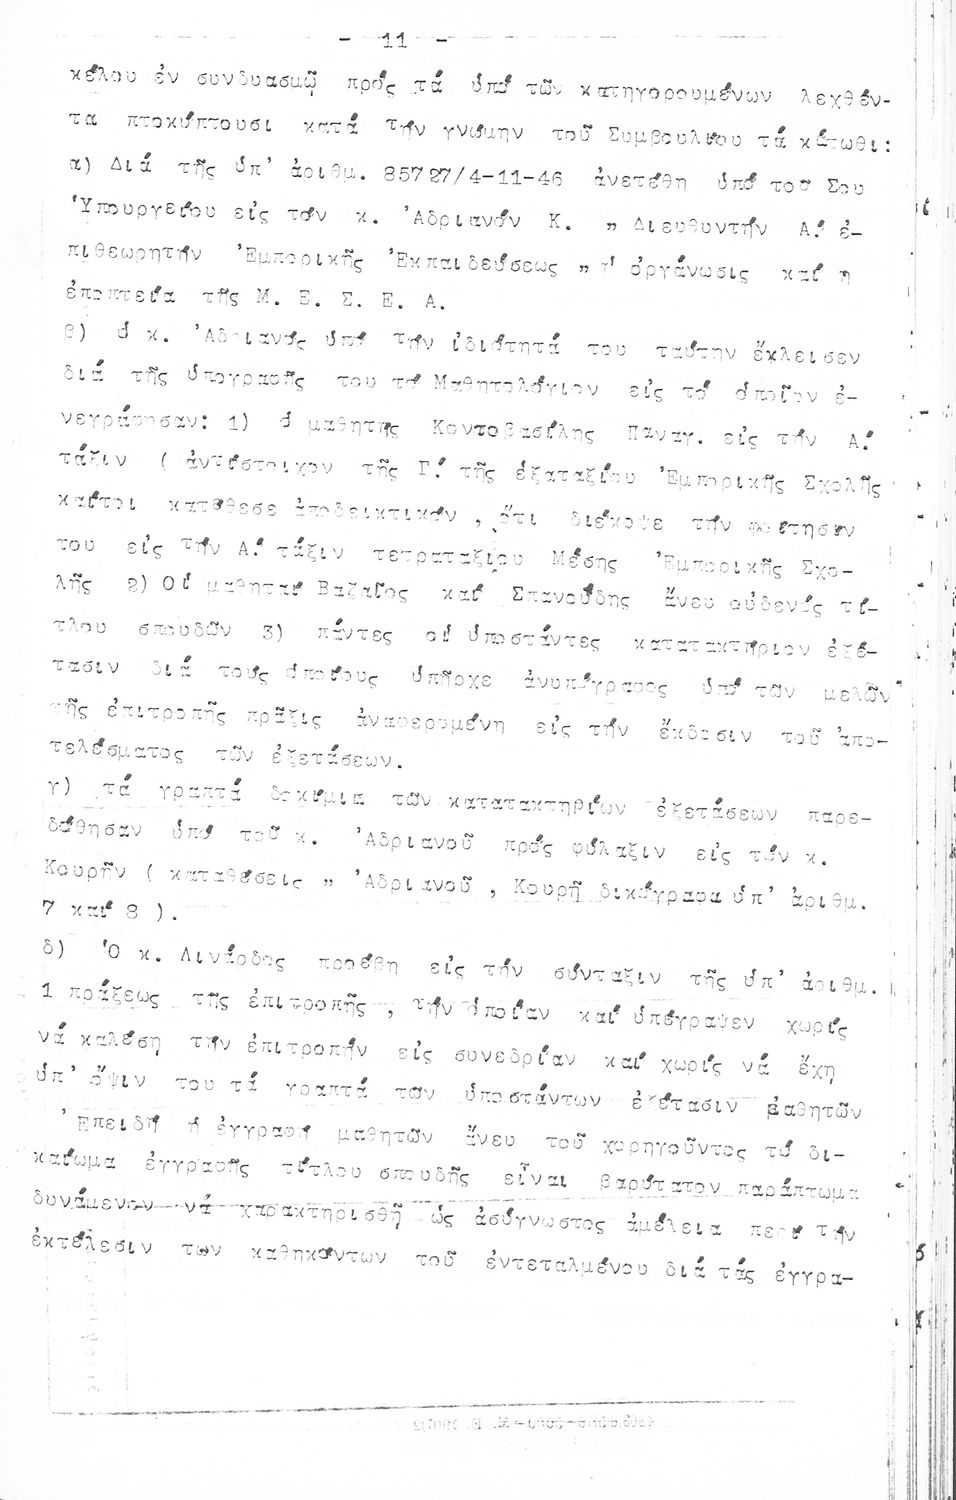 - 11 -
κέλου ἐν συνδυασμῷ πρός τά ὑπό τῶν κατηγορουμένων λεχθέν-
τα πτοκύπτουσι κατά τήν γνώμην τοῦ Συμβουλίου τά κάτωθι:
α) Διά τῆς ὑπ' ἀριθμ. 85727/4-11-46 ἀνετέθη ὑπό τοῦ Σου
Ὑπουργείου εἰς τόν κ. Ἀδριανόν Κ. " Διευθυντήν Α.' ἐ-
πιθεωρητήν Ἐμπορικῆς Ἐκπαιδεύσεως " ἡ ὀργάνωσις καί η
ἐποπτεία τῆς Μ. Ε. Σ. Ε. Α.
β) ὁ κ. Ἀδριανός ὑπό τήν ἰδιότητά του ταύτην ἔκλεισεν
διά τῆς ὑπογραφῆς του τό Μαθητολόγιον εἰς τό ὁποῖον ἐ-
νεγράφησαν: 1) ὁ μαθητης Κοντοβασίλης Παναγ. εἰς τήν Α.'
τάξιν ( ἀντίστοιχον τῆς Γ.' τῆς ἑξαταξίου Ἐμπορικῆς Σχολῆς
καίτοι κατέθεσε ἀποδεικτικόν , ὅτι διέκοψε τήν φοίτησιν
του εἰς τήν Α.' τάξιν τετραταξίου Μέσης Ἐμπορικῆς Σχο-
λῆς 2) Οἱ μαθηταί Βαζαῖος καί Σπανούδης ἄνευ οὐδενός τί-
τλου σπουδῶν 3) πάντες οἱ ὑποστάντες κατατακτήριον ἐξέ-
τασιν διά τούς ὁποίους ὑπῆρχε ἀνυπόγραφος ὑπό τῶν μελῶν
τῆς ἐπιτροπῆς πρᾶξις ἀναφερομένη εἰς τήν ἔκδοσιν τοῦ ἀπο-
τελέσματος τῶν ἐξετάσεων.
γ) τά γραπτά δοκίμια τῶν κατατακτηρίων ἐξετάσεων παρε-
δόθησαν ὑπό τοῦ κ. Ἀδριανοῦ πρός φύλαξιν εἰς τόν κ.
Κουρῆν ( καταθέσεις " Ἀδριανοῦ , Κουρῆ δικόγραφα ὑπ' ἀριθμ.
7 καί 8 ).
δ) Ὁ κ. Λινάρδος προέβη εἰς τήν σύνταξιν τῆς ὑπ' ἀριθμ.
1 πράξεως τῆς ἐπιτροπῆς , τήν ὁποίαν καί ὑπέγραψεν χωρίς
νά καλέση τήν ἐπιτροπήν εἰς συνεδρίαν καί χωρίς νά ἔχη
ὑπ' ὄψιν του τά γραπτά των ὑποστάντων ἐξέτασιν μαθητῶν
Ἐπειδή ἡ ἐγγραφή μαθητῶν ἄνευ τοῦ χορηγοῦντος τό δι-
καίωμα ἐγγραφῆς τίτλου σπουδῆς εἶναι βαρύτατον παράπτωμα
δυνάμενον νά χαρακτηρισθῆ ὡς ἀσύγνωστος ἀμέλεια περί τήν
ἐκτέλεσιν των καθηκόντων τοῦ ἐντεταλμένου διά τάς ἐγγρα-